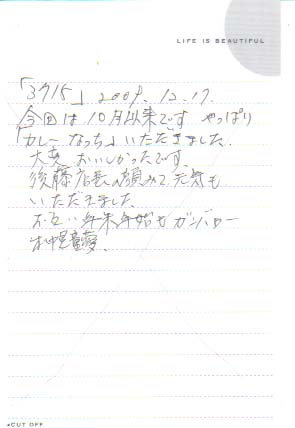 LIFE IS BEAUTIFUL
「3715」2009.12.17.
今回は10月以来です やっぱり
「カレーなっち」いただきました.
大変 おいしかったです.
後藤店長の顔みて元気も
いただきました
お互い年末年始もガンバロー
CUT OFF